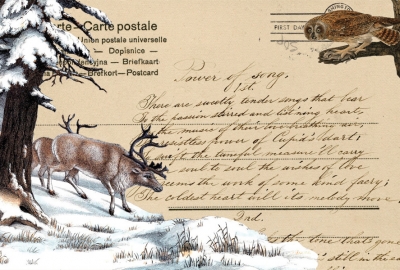 arte-Carte postale
Union postale universelle
- Dopisnice -
- Briefkaart
- Brefkort-Postcard
FIRST DA
Power of song.
1st.
There are sweetly tender songs that bear
To the passion stirred and list'ning heart,
the music of their love breathing air,
sistless power of Cupid's dart;
waft the tuneful measure I'll carry
soul to soul the wishes of love
eems the work of some kind fairy;
The coldest heart will its melody move
2nd.
the time that's gone
still in the